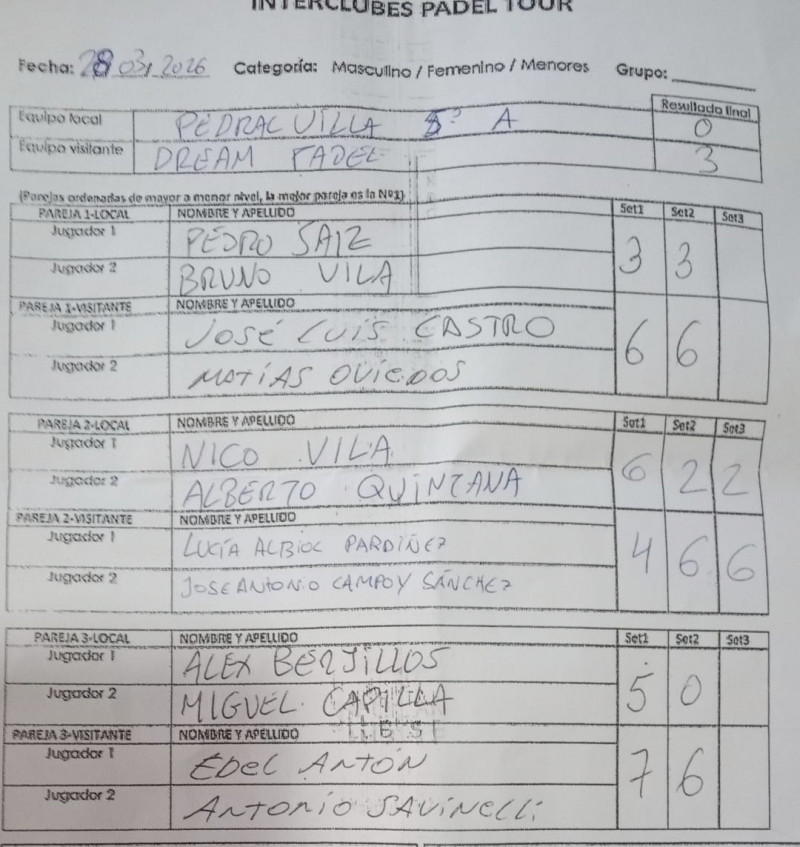 INTERCLUBES PADEL TOUR
Fecha: 28 03, 2026 Categoría: Masculino / Femenino / Menores Grupo:
Resultado final
Equipo local PEDRAC VILLA 5º A 0
Equipo visitante DREAM PADEL 3
(Parejas ordenadas de mayor a menor nivel, la mejor pareja es la Nº1)
PAREJA 1-LOCAL NOMBRE Y APELLIDO Set1 Set2 Set3
Jugador 1 PEDRO SAIZ 3 3
Jugador 2 BRUNO VILA
PAREJA 1-VISITANTE NOMBRE Y APELLIDO
Jugador 1 JOSÉ LUIS CASTRO 6 6
Jugador 2 MATÍAS OVIEDOS
PAREJA 2-LOCAL NOMBRE Y APELLIDO Set1 Set2 Set3
Jugador 1 NICO VILA 6 2 2
Jugador 2 ALBERTO QUINTANA
PAREJA 2-VISITANTE NOMBRE Y APELLIDO
Jugador 1 LUCÍA ALBIOL PARDIÑEZ 4 6 6
Jugador 2 JOSE ANTONIO CAMPOY SÁNCHEZ
PAREJA 3-LOCAL NOMBRE Y APELLIDO Set1 Set2 Set3
Jugador 1 ALEX BERJILLOS 5 0
Jugador 2 MIGUEL CAPILLA
PAREJA 3-VISITANTE NOMBRE Y APELLIDO
Jugador 1 EDEL ANTÓN 7 6
Jugador 2 ANTONIO SAVINELLI